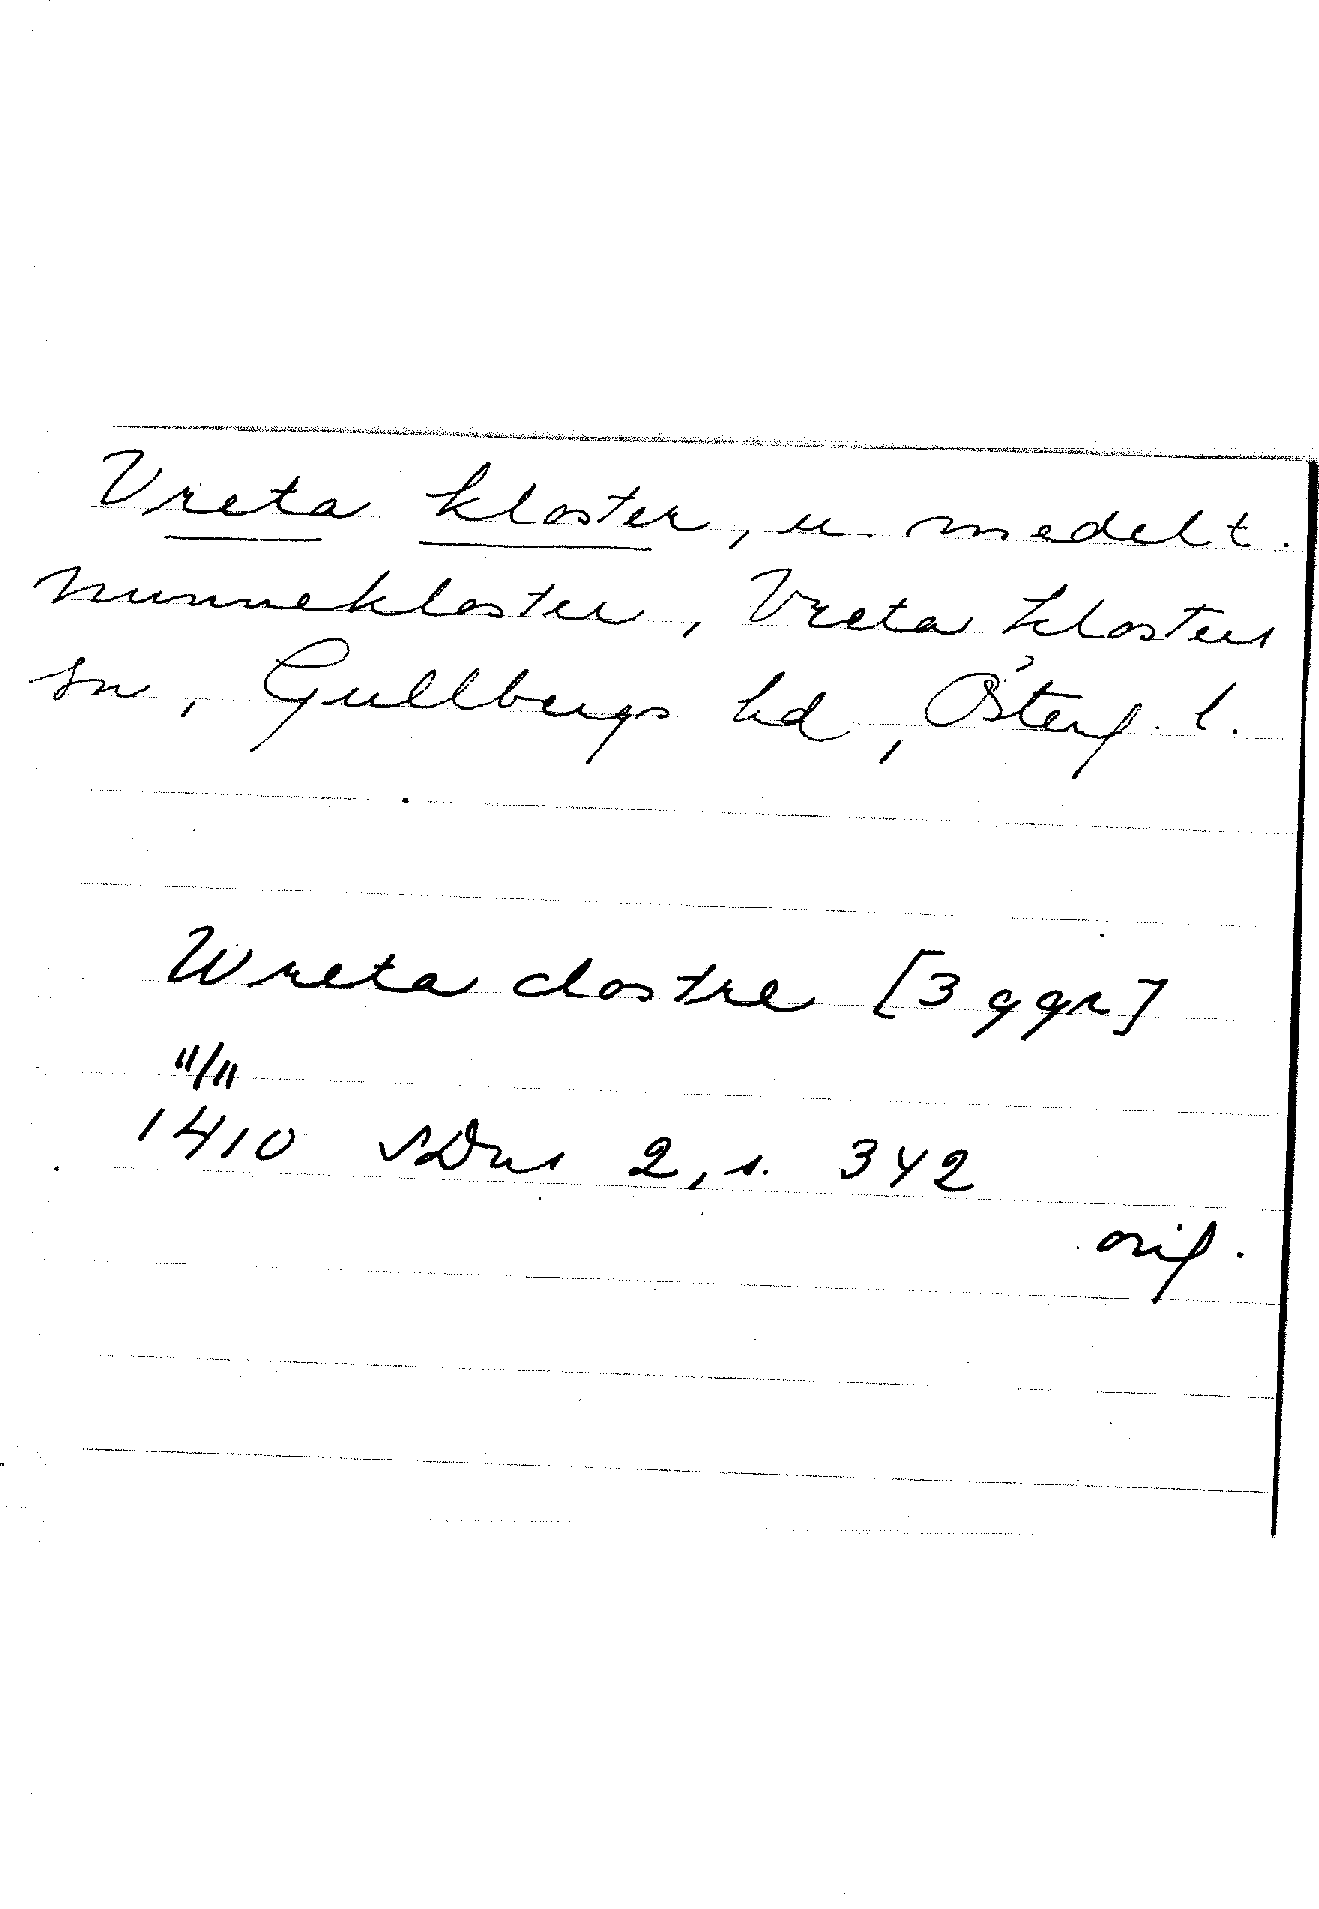 Vreta kloster, u. medelt.
nunnekloster, Vreta klosters
sn, Gullbergs hd, Österg. l.
Wreta clostre [3 ggr]
11/11
1410 SDns 2, s. 342
orig.